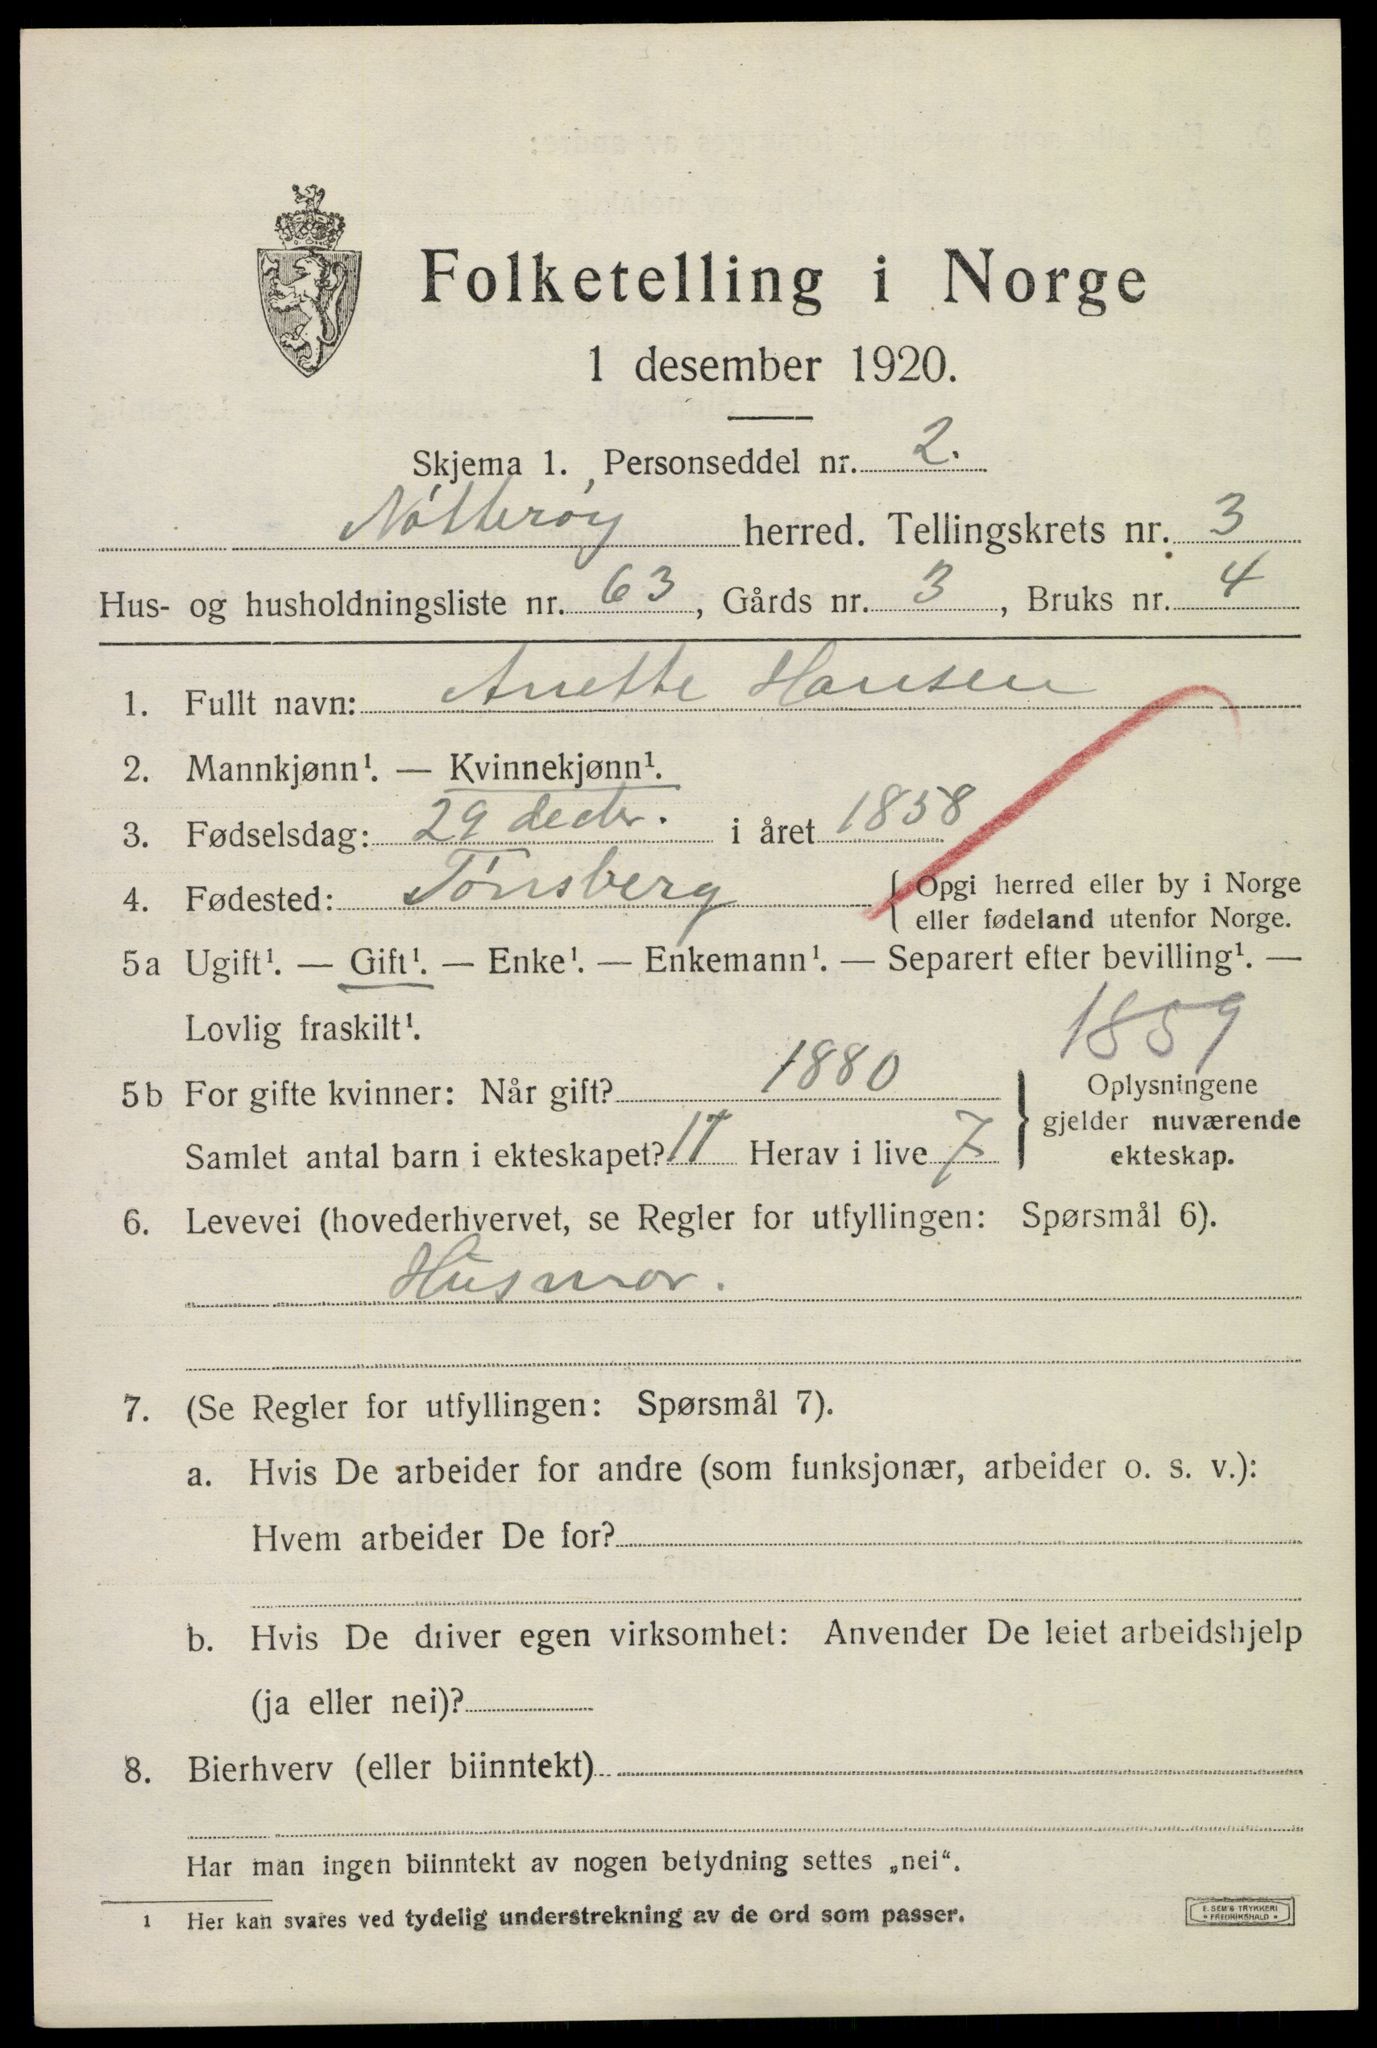 Folketelling i Norge
1 desember 1920.
Skjema 1. Personseddel nr. 2.
Nøtterøy herred. Tellingskrets nr. 3
Hus- og husholdningsliste nr. 63, Gårds nr. 3, Bruks nr. 4
1. Fullt navn: Anette Hansen
2. Mannkjønn¹. — Kvinnekjønn¹.
3. Fødselsdag: 29 decbr. i året 1858
4. Fødested: Tönsberg { Opgi herred eller by i Norge
eller fødeland utenfor Norge.
5a Ugift¹. — Gift¹. — Enke¹. — Enkemann¹. — Separert efter bevilling¹. —
Lovlig fraskilt¹.
1859
5b For gifte kvinner: Når gift? 1880
Samlet antal barn i ekteskapet? 17 Herav i live 7
} Oplysningene
gjelder nuværende
ekteskap.
6. Levevei (hovederhvervet, se Regler for utfyllingen: Spørsmål 6).
Husmor.
7. (Se Regler for utfyllingen: Spørsmål 7).
a. Hvis De arbeider for andre (som funksjonær, arbeider o. s. v.):
Hvem arbeider De for?
b. Hvis De driver egen virksomhet: Anvender De leiet arbeidshjelp
(ja eller nei)?
8. Bierhverv (eller biinntekt)
Har man ingen biinntekt av nogen betydning settes „nei“.
1 Her kan svares ved tydelig understrekning av de ord som passer.
E. SEM'S TRYKKERI
* FREDRIKSHALD *